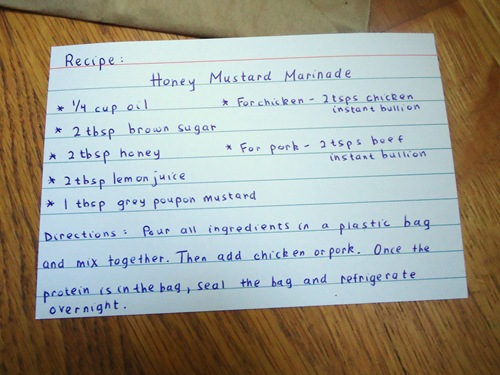 Recipe:
Honey Mustard Marinade
* 1/4 cup oil
* For chicken - 2 tsps chicken
instant bullion
* 2 tbsp brown sugar
* 2 tbsp honey
* For pork - 2 tsps beef
instant bullion
* 2 tbsp lemon juice
* 1 tbsp grey poupon mustard
Directions: Pour all ingredients in a plastic bag
and mix together. Then add chicken or pork. Once the
protein is in the bag, seal the bag and refrigerate
overnight.